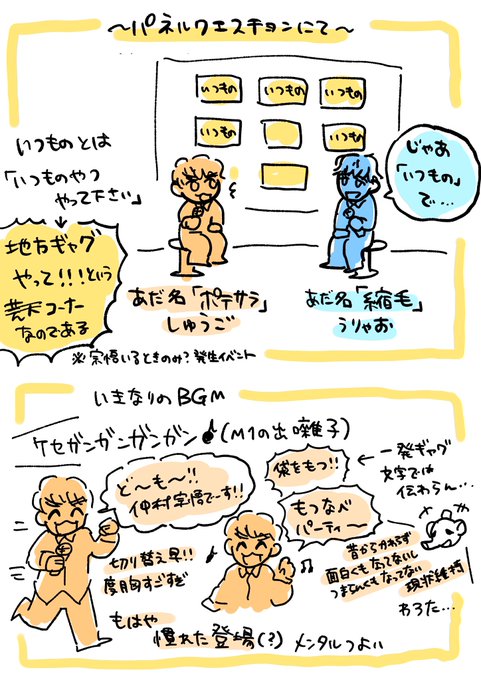 ～パネルクエスチョンにて～
いつもの
いつもの
いつもの
いつもの
いつもの
いつものとは
「いつものやつ
やって下さい」
↓
地方ギャグ
やって!!!という
コーナー
なのである
じゃあ
「いつもの」
で…
あだ名「ポテサラ」
しゅうご
あだ名「縮毛」
うりゃお
※宗悟いるときのみ?発生イベント
いきなりのBGM
ケセガンガンガンガン♪(M1の出囃子)
ど～も～!!
仲村宗悟でーす!!
袋をもつ!!
←一発ギャグ
文字では
伝わらん…
もつなべ
パーティー
切り替え早!!
度胸すごすぎ
昔からかわらず
面白くもなってないし
つまらんくもなってない
現状維持
わろた…
もはや
慣れた登場(?)
メンタルつよい